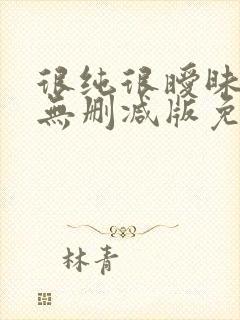 很纯很暧昧
無删减版免
林青